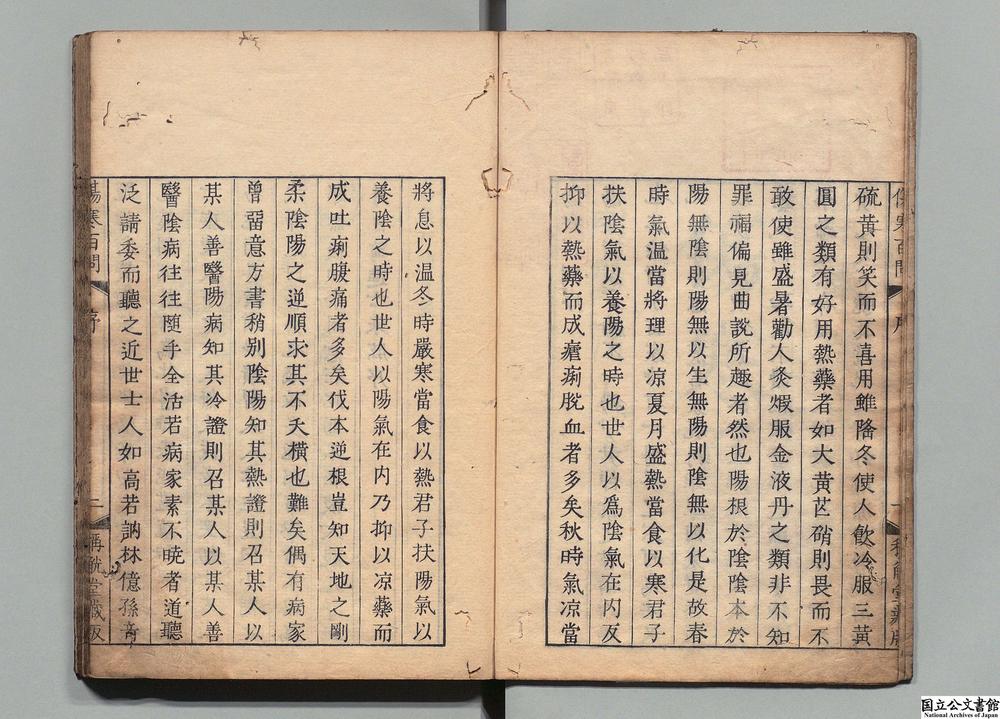 硫黃則笑而不喜用雖隆冬使人飮冷服三黃
圓之類有好用熱藥者如大黃芒硝則畏而不
敢使雖盛暑勸人灸煆服金液丹之類非不知
罪福偏見曲說所趣者然也陽根於陰陰本於
陽無陰則陽無以生無陽則陰無以化是故春
時氣溫當將理以凉夏月盛熱當食以寒君子
扶陰氣以養陽之時也世人以爲陰氣在內反
抑以熱藥而成瘧痢脫血者多矣秋時氣凉當
將息以温冬時嚴寒當食以熱君子扶陽氣以
養陰之時也世人以陽氣在内乃抑以凉藥而
成吐痢腹痛者多矣伐本逆根豈知天地之剛
柔陰陽之逆順求其不夭橫也難矣偶有病家
曾留意方書稍別陰陽知其熱證則召某人以
某人善醫陽病知其冷證則召某人以某人善
醫陰病往往随手全活若病家素不曉者道聽
泛請委而聽之近世士人如高若訥林億孫奇
傷寒百問 序 二
国立公文書館
National Archives of Japan